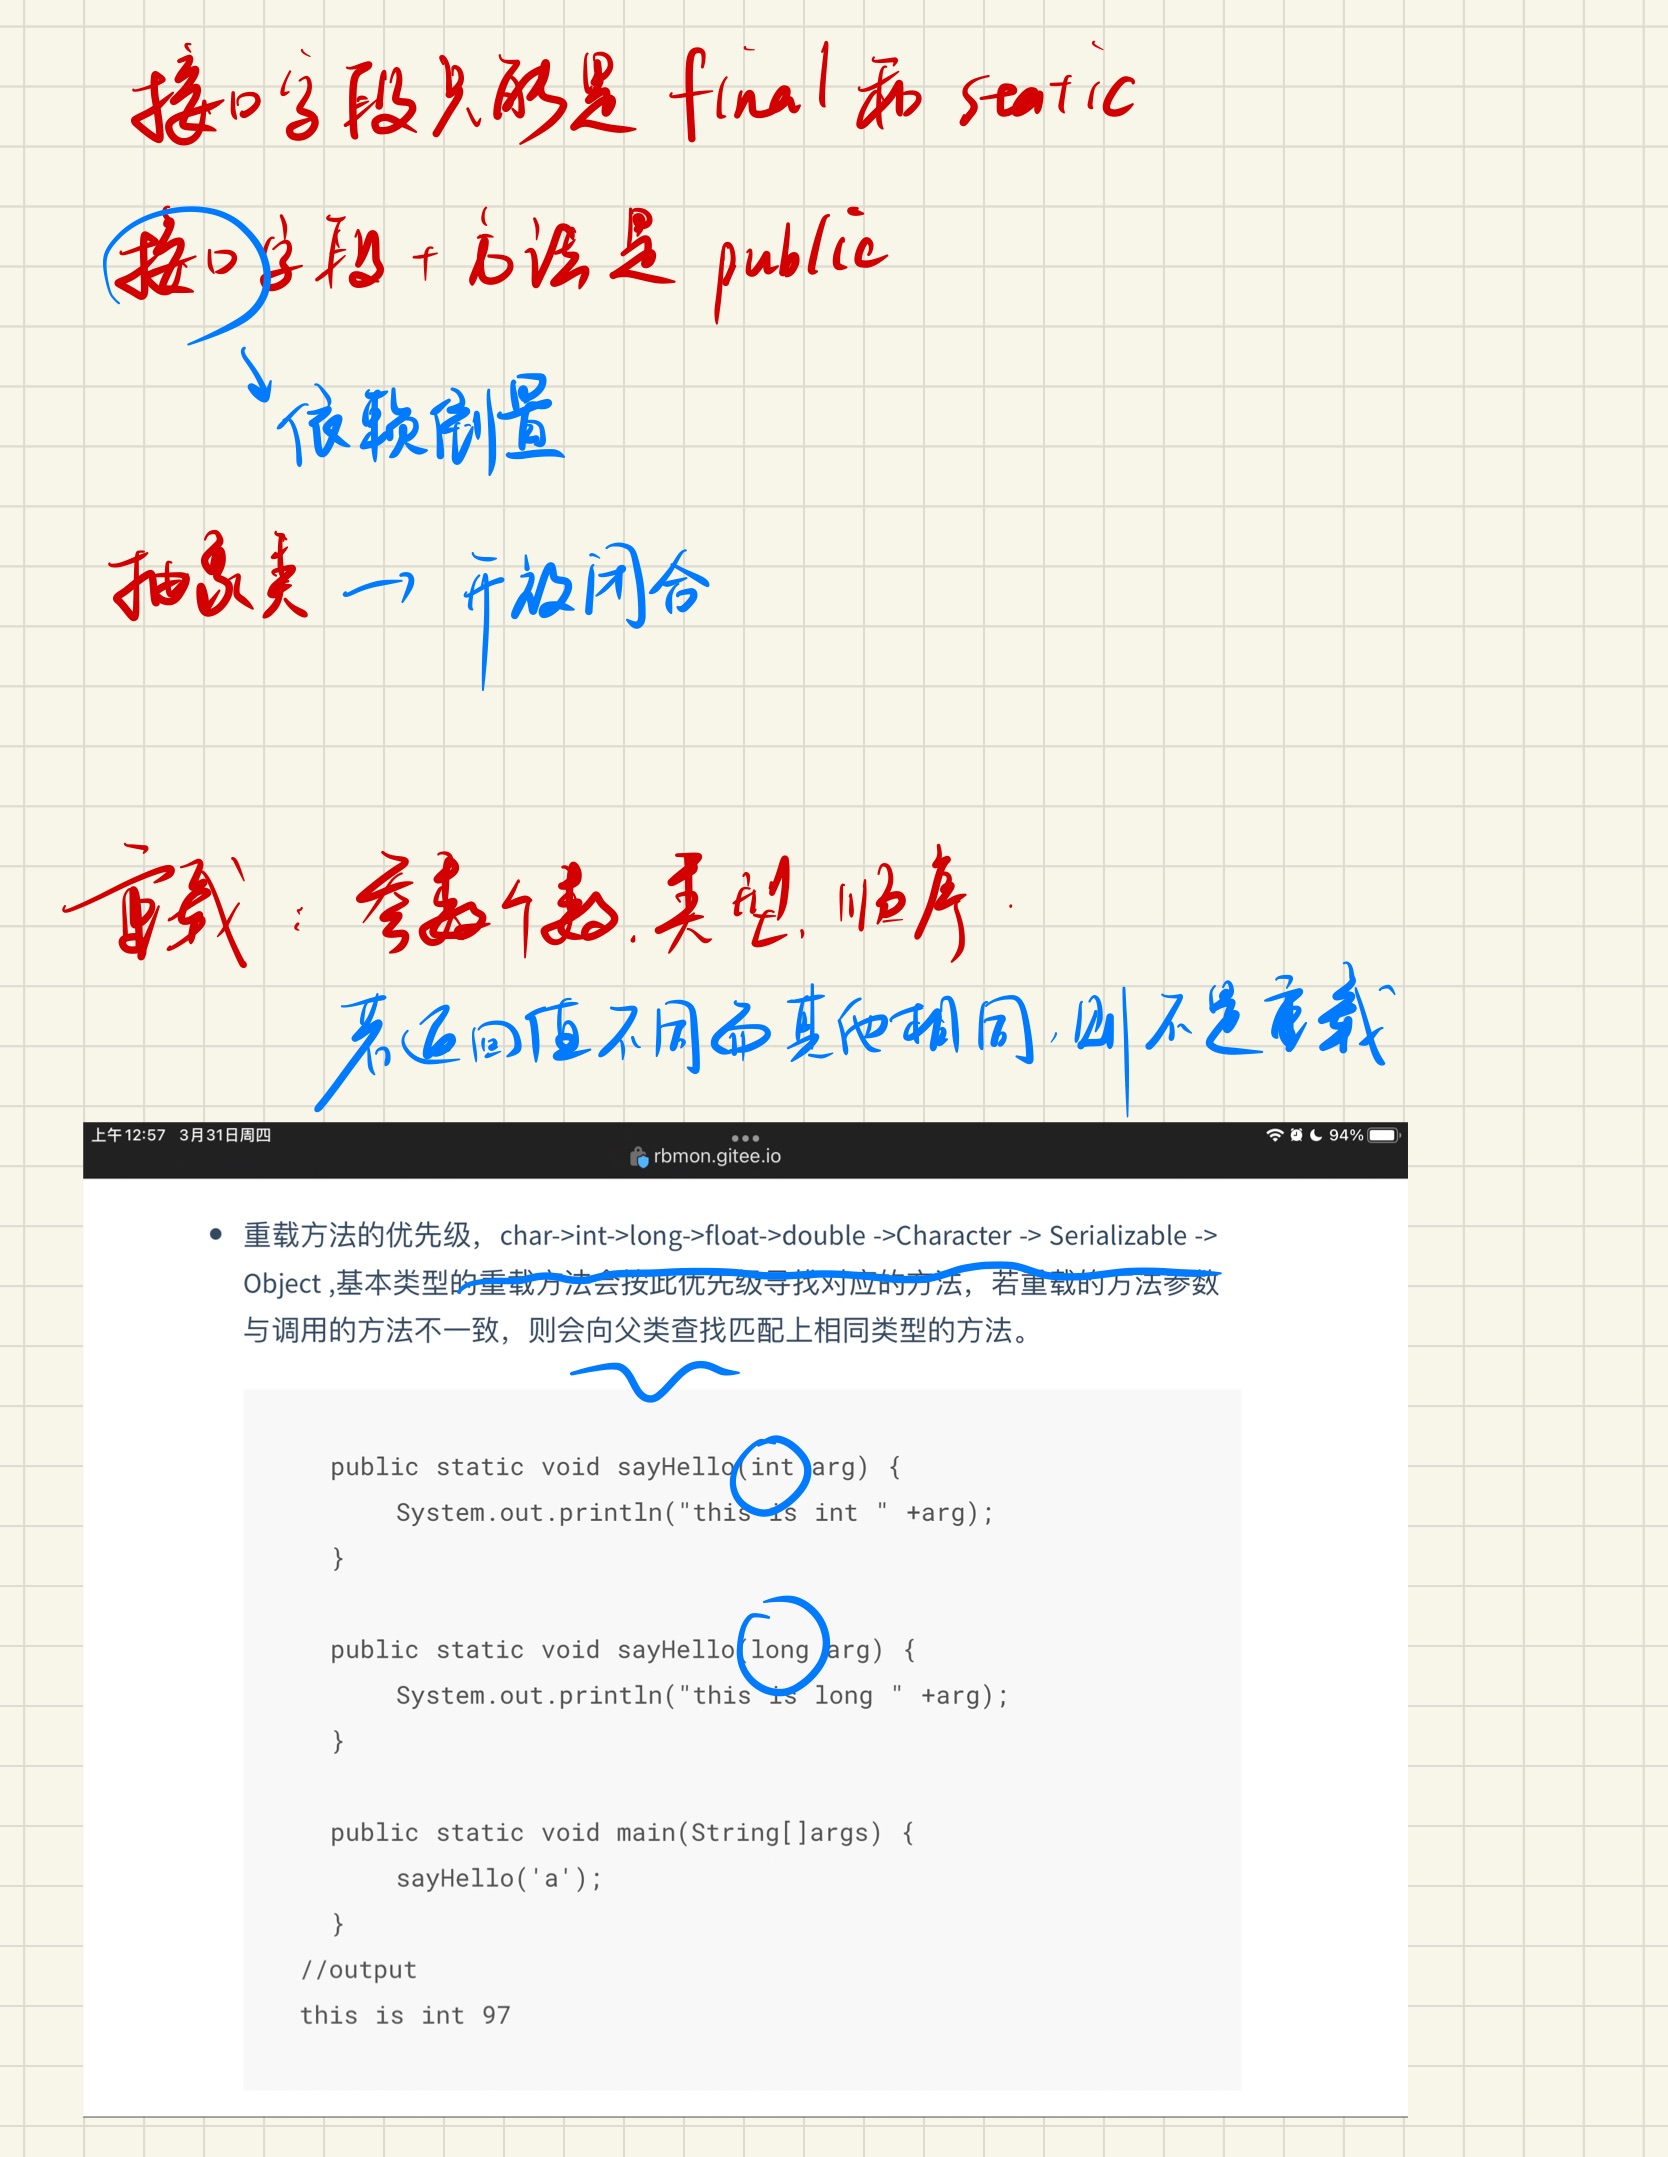 接口字段只能是 final 和 static
接口字段+方法是 public
依赖倒置
抽象类 → 开放闭合
重载：参数个数、类型、顺序.
若返回值不同而其他相同，则不是重载
上午12:57 3月31日周四
94%
rbmon.gitee.io
重载方法的优先级，char->int->long->float->double ->Character -> Serializable ->
Object ,基本类型的重载方法会按此优先级寻找对应的方法，若重载的方法参数
与调用的方法不一致，则会向父类查找匹配上相同类型的方法。
public static void sayHello(int arg) {
System.out.println("this is int " +arg);
}
public static void sayHello(long arg) {
System.out.println("this is long " +arg);
}
public static void main(String[]args) {
sayHello('a');
}
//output
this is int 97